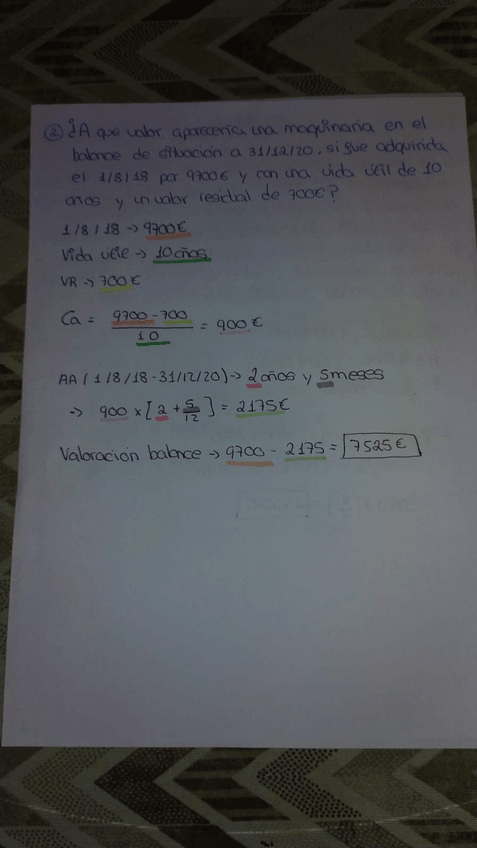 ② ¿A qué valor aparecería una maquinaria en el
balance de situación a 31/12/20, si fue adquirida
el 1/8/18 por 9700€ y con una vida útil de 10
años y un valor residual de 700€?
1/8/18 → 9700€
Vida útil → 10 años
VR → 700€
Ca = 9700 - 700 / 10 = 900€
AA (1/8/18 - 31/12/20) → 2 años y 5 meses
→ 900 x [2 + 5/12] = 2175€
Valoración balance → 9700 - 2175 = 7525€